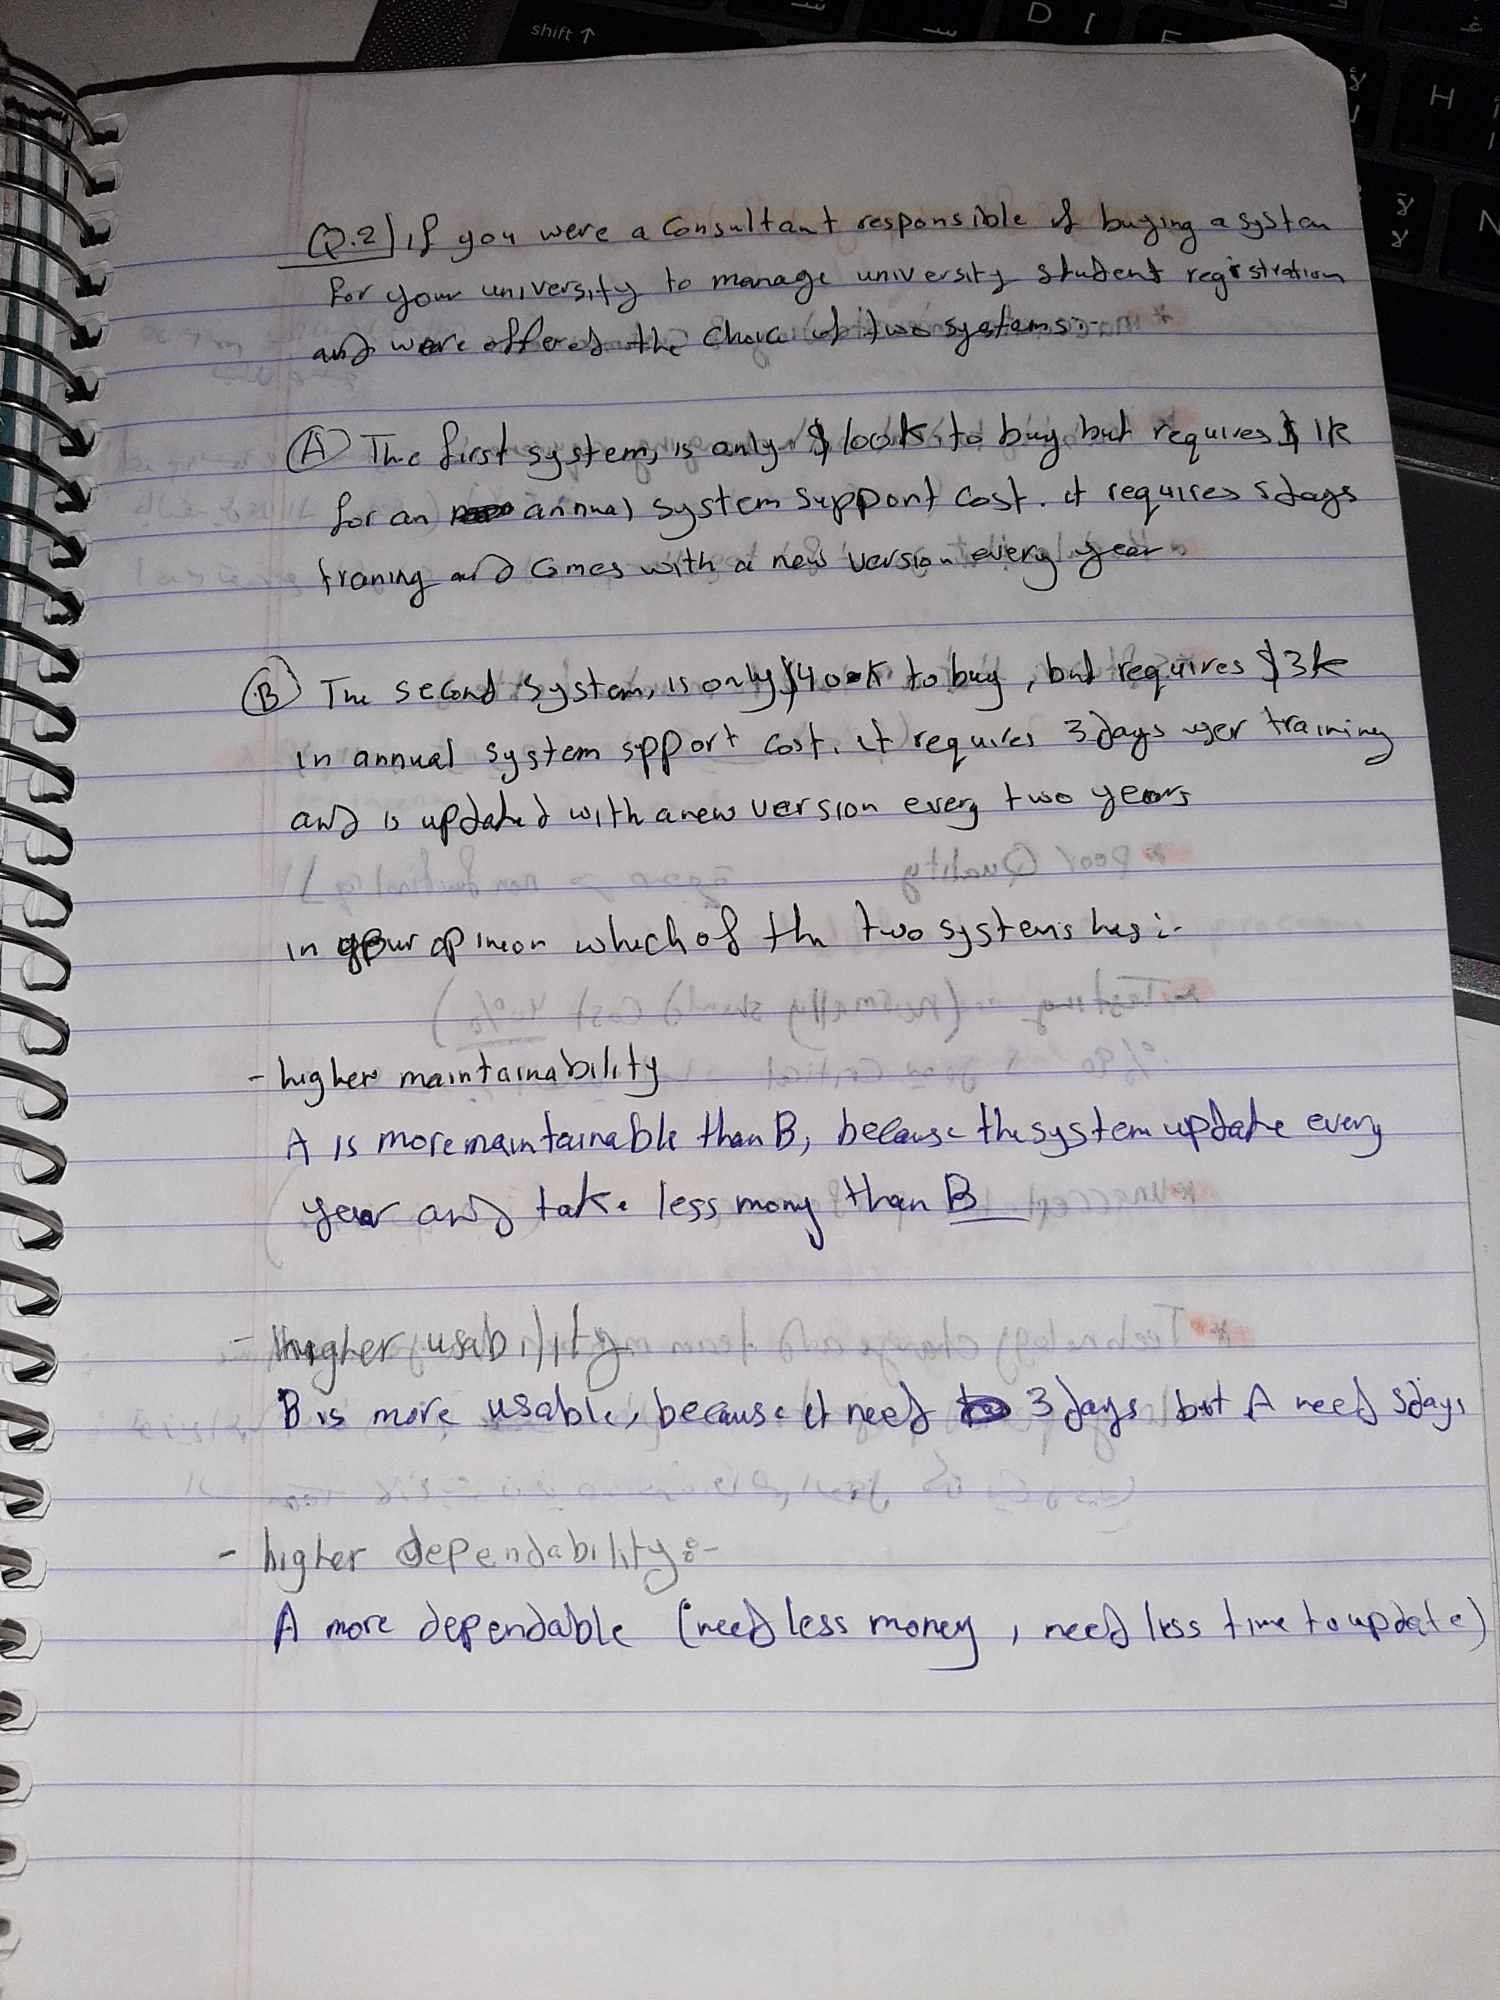 shift ↑
D
H
N
Q.2) if you were a Consultant responsible of buying a system
for your university to manage university student registration
and were offered the choice of two systems:-
(A) The first system, is only $100K to buy but requires $1k
for an annual system support cost. it requires 5days
traning and Comes with a new version every year
(B) The second system, is only $400K to buy, but requires $3k
in annual system spport cost. it requires 3days user training
and is updated with a new version every two years
in your opineon which of the two systems has:-
- higher maintainability
A is more maintainable than B, because the system update every
year and take less mony than B
- higher usability
B is more usable, because it need 3days but A need 5days
- higher dependability:-
A more dependable (need less money, need less time to update)